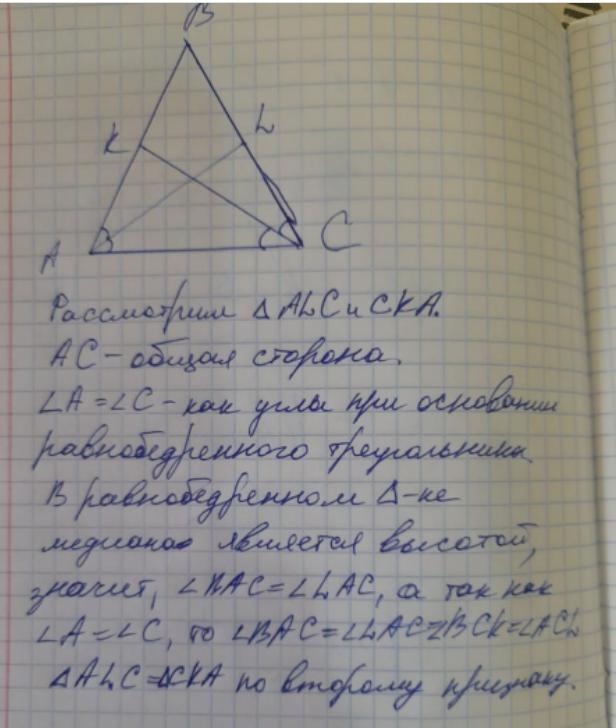 B
K
L
A
C
Рассмотрим ΔALC и CKA.
AC - общая сторона.
∠A = ∠C - как углы при основании
равнобедренного треугольника.
В равнобедренном Δ-ке
медиана является высотой,
значит, ∠BAC = ∠LAC, а так как
∠A = ∠C, то ∠BAC = ∠LAC = ∠BCK = ∠ACL
ΔALC = ΔCKA по второму признаку.